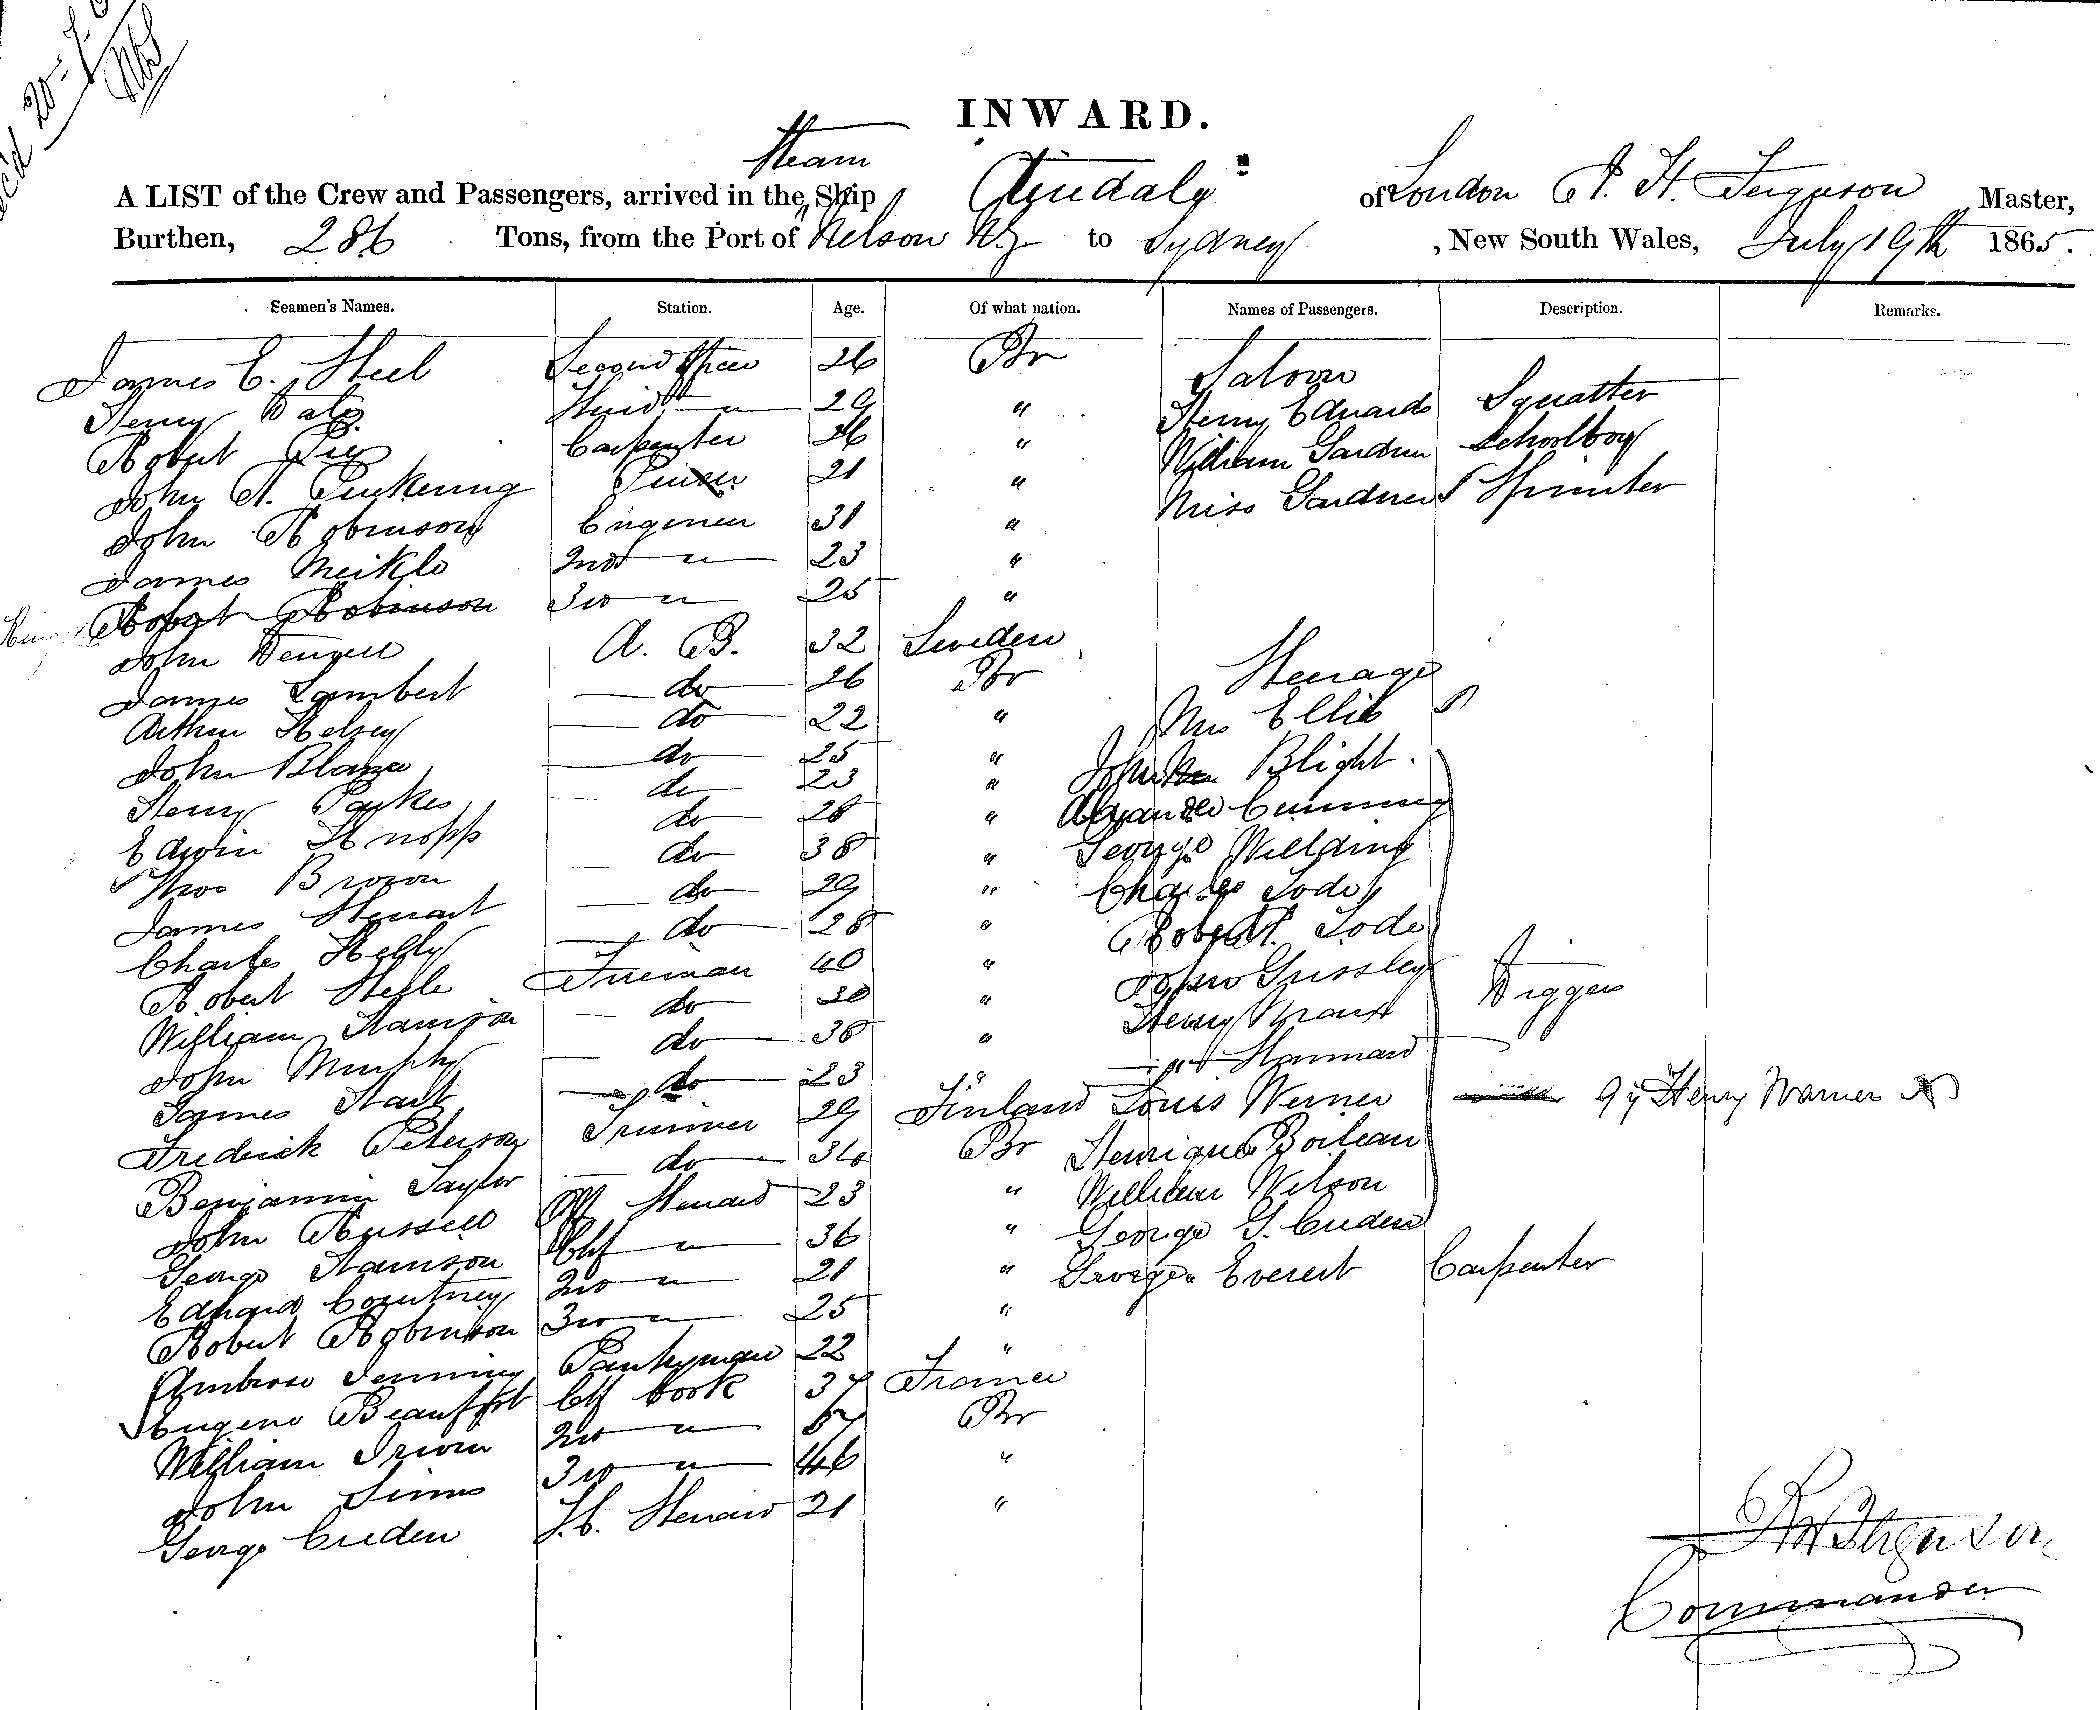 INWARD.
Steam
A LIST of the Crew and Passengers, arrived in the Ship of London Ferguson Master,
Burthen, 286 Tons, from the Port of Nelson NZ to Sydney, New South Wales, July 19th 1865.
Seamen's Names. Station. Age. Of what nation. Names of Passengers. Description. Remarks.
James E. Steel Second Officer 26 Br Saloon
Henry Third " 29 " Henry Edwards Squatter
Robert Carpenter 26 " William Gardner Schoolboy
John A. Pickering Purser 21 " Miss Gardner Spinster
John Robinson Engineer 31 "
James Meikle 2nd " 23 "
Robert Robinson 3rd " 25 "
John A. B. 32 Sweden
James Lambert do 26 Br Steerage
Arthur Kelsey do 22 " Mrs Ellis
John do 25 " John Blight
Henry do 23 " Alexander Cumming
Edwin Knopp do 28 " George Willding
Thos Brown do 38 " Charles Lode
James Stewart do 29 " Robert Lode
Charles Kelly do 28 " John Grissley
Robert Steele Fireman 40 " Henry Diggers
William Hamson do 30 " " Hannard
John Murphy do 38 "
James Hart do 23 " Louis Werner Henry Warner
Fredrick Peterson Trimmer 29 Finland Henrique Boileau
Benjamin Taylor do 34 Br William Wilson
John Russell Steward 23 " George G. Cuden
George Hamson Chf " 36 " George Everest Carpenter
Edward Courtney 2nd " 21 "
Robert Robinson 3rd " 25 "
Ambrose Jenning Pantryman 22 "
Eugene Beauffort Chf Cook 37 France
William Irwin 2nd " Br
John Sims 3rd " 46 "
George Cuden Steward 21 "
Commander